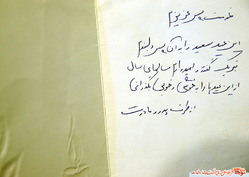 خدمت پسر عزیزم
این عید سعید را به آن پسر دلبندم
تبریک گفته و امیدوارم سالهای سال
از این عیدها را به خوشی و خوبی بگذرانی
از طرف پدر و مادرت